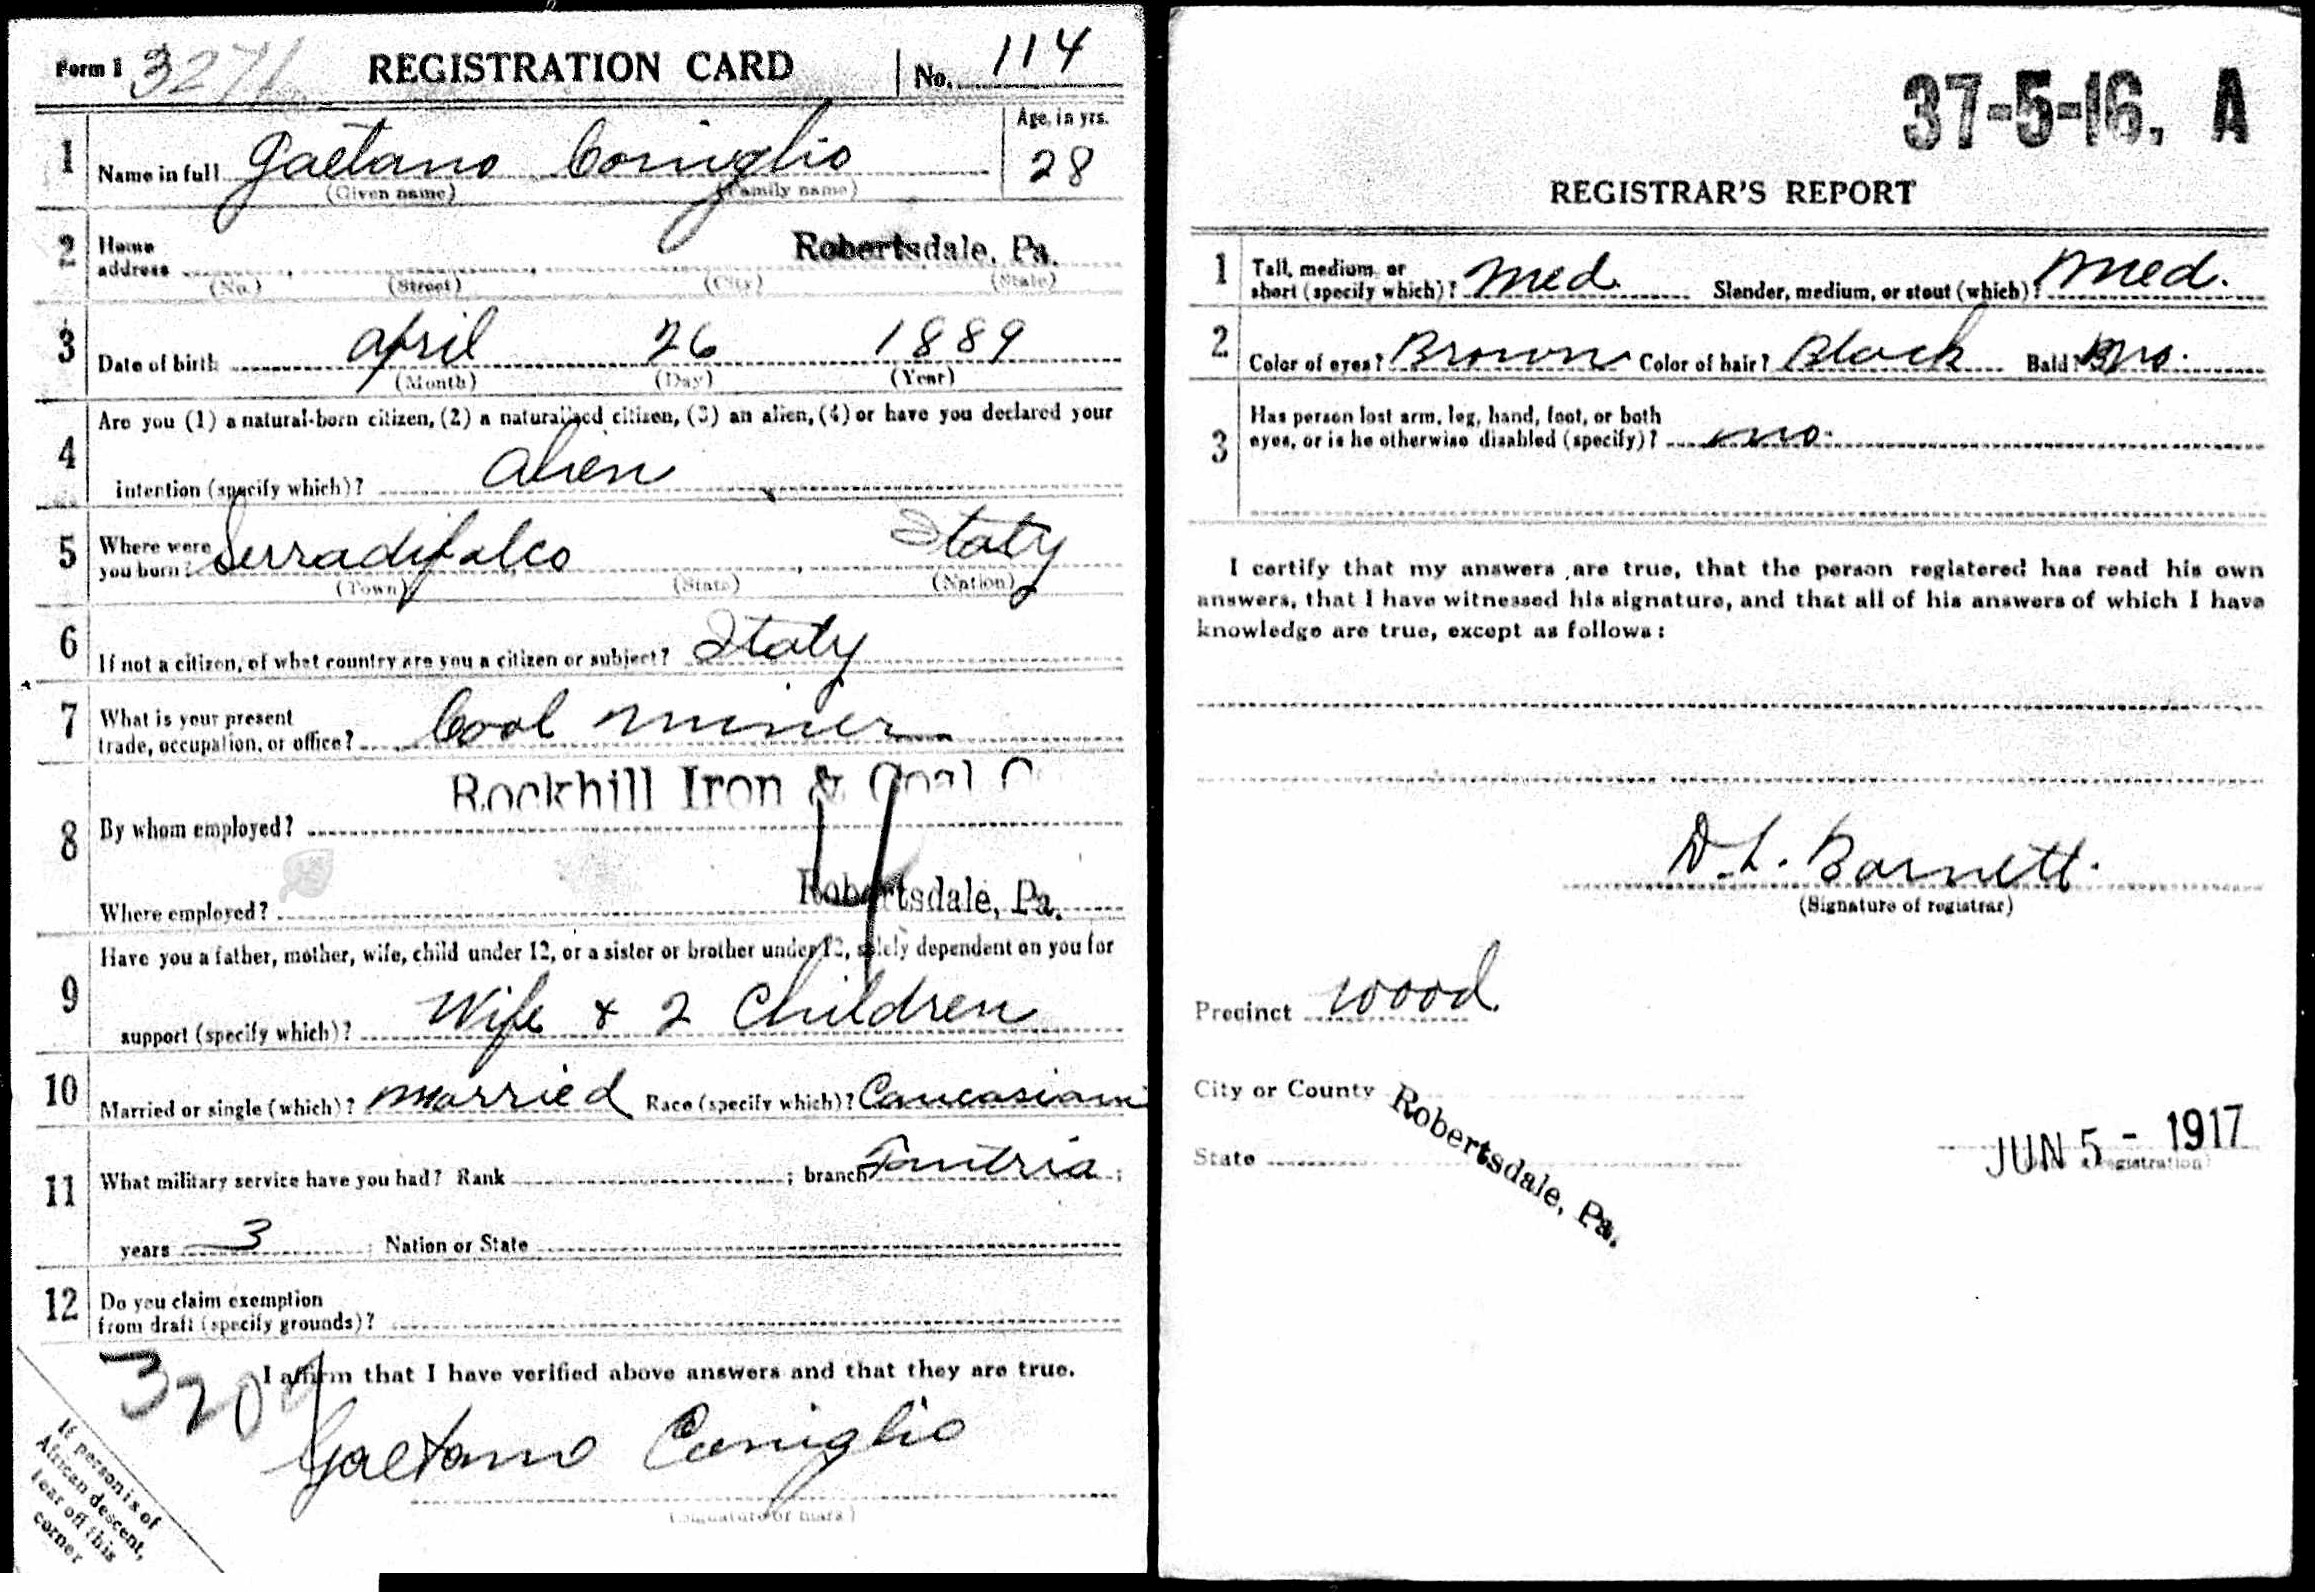 Form 1 REGISTRATION CARD No. 114
1 Name in full Gaetano Coniglio Age, in yrs. 28
(Given name) (Family name)
2 Home address Robertsdale, Pa.
(No.) (Street) (City) (State)
3 Date of birth April 26 1889
(Month) (Day) (Year)
4 Are you (1) a natural-born citizen, (2) a naturalized citizen, (3) an alien, (4) or have you declared your
intention (specify which)? alien
5 Where were you born? Serradifalco Italy
(Town) (State) (Nation)
6 If not a citizen, of what country are you a citizen or subject? Italy
7 What is your present
trade, occupation, or office? Coal miner
Rockhill Iron & Coal
8 By whom employed?
Where employed? Robertsdale, Pa.
9 Have you a father, mother, wife, child under 12, or a sister or brother under 12, solely dependent on you for
support (specify which)? Wife & 2 Children
10 Married or single (which)? married Race (specify which)? Caucasian
11 What military service have you had? Rank ; branch ;
years 3 ; Nation or State
12 Do you claim exemption
from draft (specify grounds)?
I affirm that I have verified above answers and that they are true.
Gaetano Coniglio
(Signature or mark)
If person is of
African descent,
tear off this
corner
37-5-16. A
REGISTRAR'S REPORT
1 Tall, medium, or
short (specify which)? Med. Slender, medium, or stout (which)? Med.
2 Color of eyes? Brown Color of hair? Black Bald? no.
3 Has person lost arm, leg, hand, foot, or both
eyes, or is he otherwise disabled (specify)? no.
I certify that my answers are true, that the person registered has read his own
answers, that I have witnessed his signature, and that all of his answers of which I have
knowledge are true, except as follows:
D. L. Barnett.
(Signature of registrar)
Precinct Wood
City or County Robertsdale, Pa.
State
JUN 5 - 1917